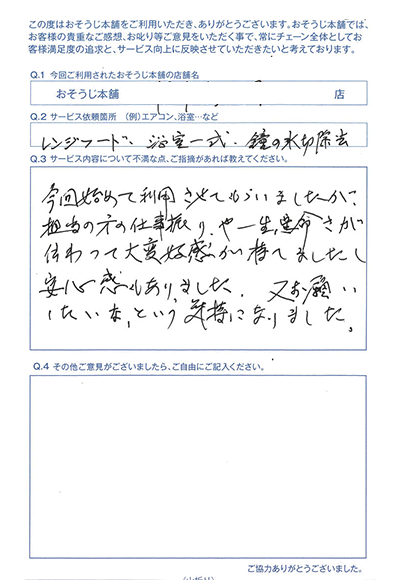 この度はおそうじ本舗をご利用いただき、ありがとうございます。おそうじ本舗では、
お客様の貴重なご感想、お叱り等ご意見をいただく事で、常にチェーン全体としてお
客様満足度の追求と、サービス向上に反映させていただきたいと考えております。
Q.1 今回ご利用されたおそうじ本舗の店舗名
おそうじ本舗 店
Q.2 サービス依頼箇所 (例)エアコン、浴室…など
レンジフード、浴室一式、鐘の水切除去
Q.3 サービス内容について不満な点、ご指摘があれば教えてください。
今回始めて利用させてもらいましたが、
担当の方の仕事振り、や一生懸命さが
伝わって大変好感が持てましたし
安心感もありました、又お願い
したいな、という気持になりました。
Q.4 その他ご意見がございましたら、ご自由にご記入ください。
ご協力ありがとうございました。